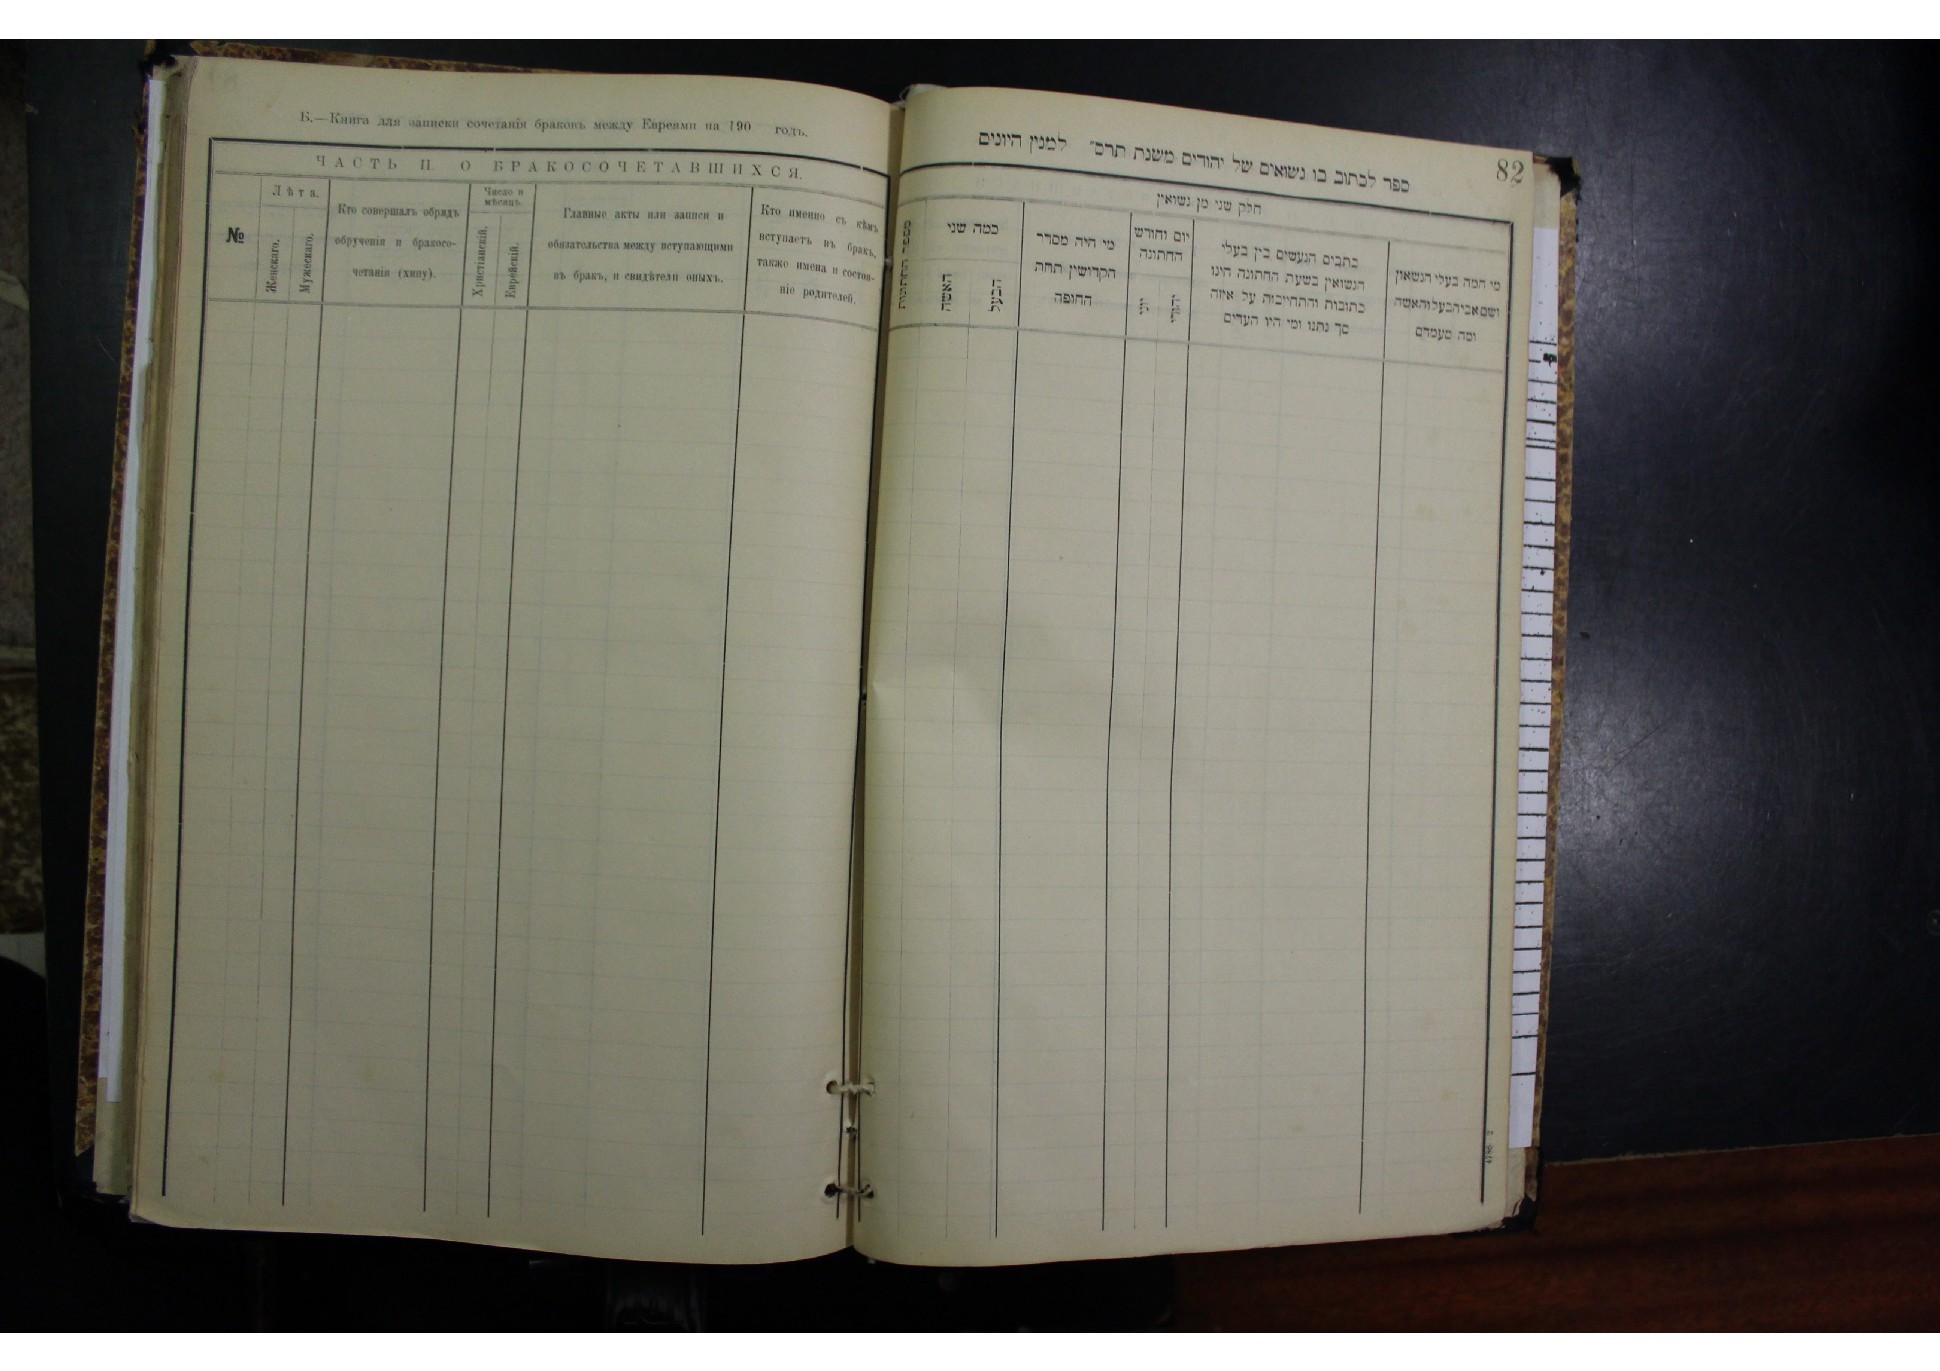 Б.—Книга для записки сочетанія браковъ между Евреями на 190 годъ.
ЧАСТЬ II. О БРАКОСОЧЕТАВШИХСЯ.
№
Лѣта.
Женскаго.
Мужескаго.
Кто совершалъ обрядъ
обрученія и бракосо-
четанія (хипу).
Число и
мѣсяцъ.
Христіанскій.
Еврейскій.
Главные акты или записи и
обязательства между вступающими
въ бракъ, и свидѣтели оныхъ.
Кто именно съ кѣмъ
вступаетъ въ бракъ,
также имена и состоя-
ніе родителей.
82
ספר לכתוב בו נשואים של יהודים משנת תרס״ למנין היונים
חלק שני מן נשואין
מספר החתונות
כמה שני
האשה
הבעל
מי היה מסדר
הקדושין תחת
החופה
יום וחודש
החתונה
יוני
יהודי
כתבים הנעשים בין בעלי
הנשואין בשעת החתונה היינו
כתובות והתחייבות על איזה
סך נתנו ומי היו העדים
מי המה בעלי הנשואין
ושם אבי הבעל והאשה
ומה מעמדם
4786 2